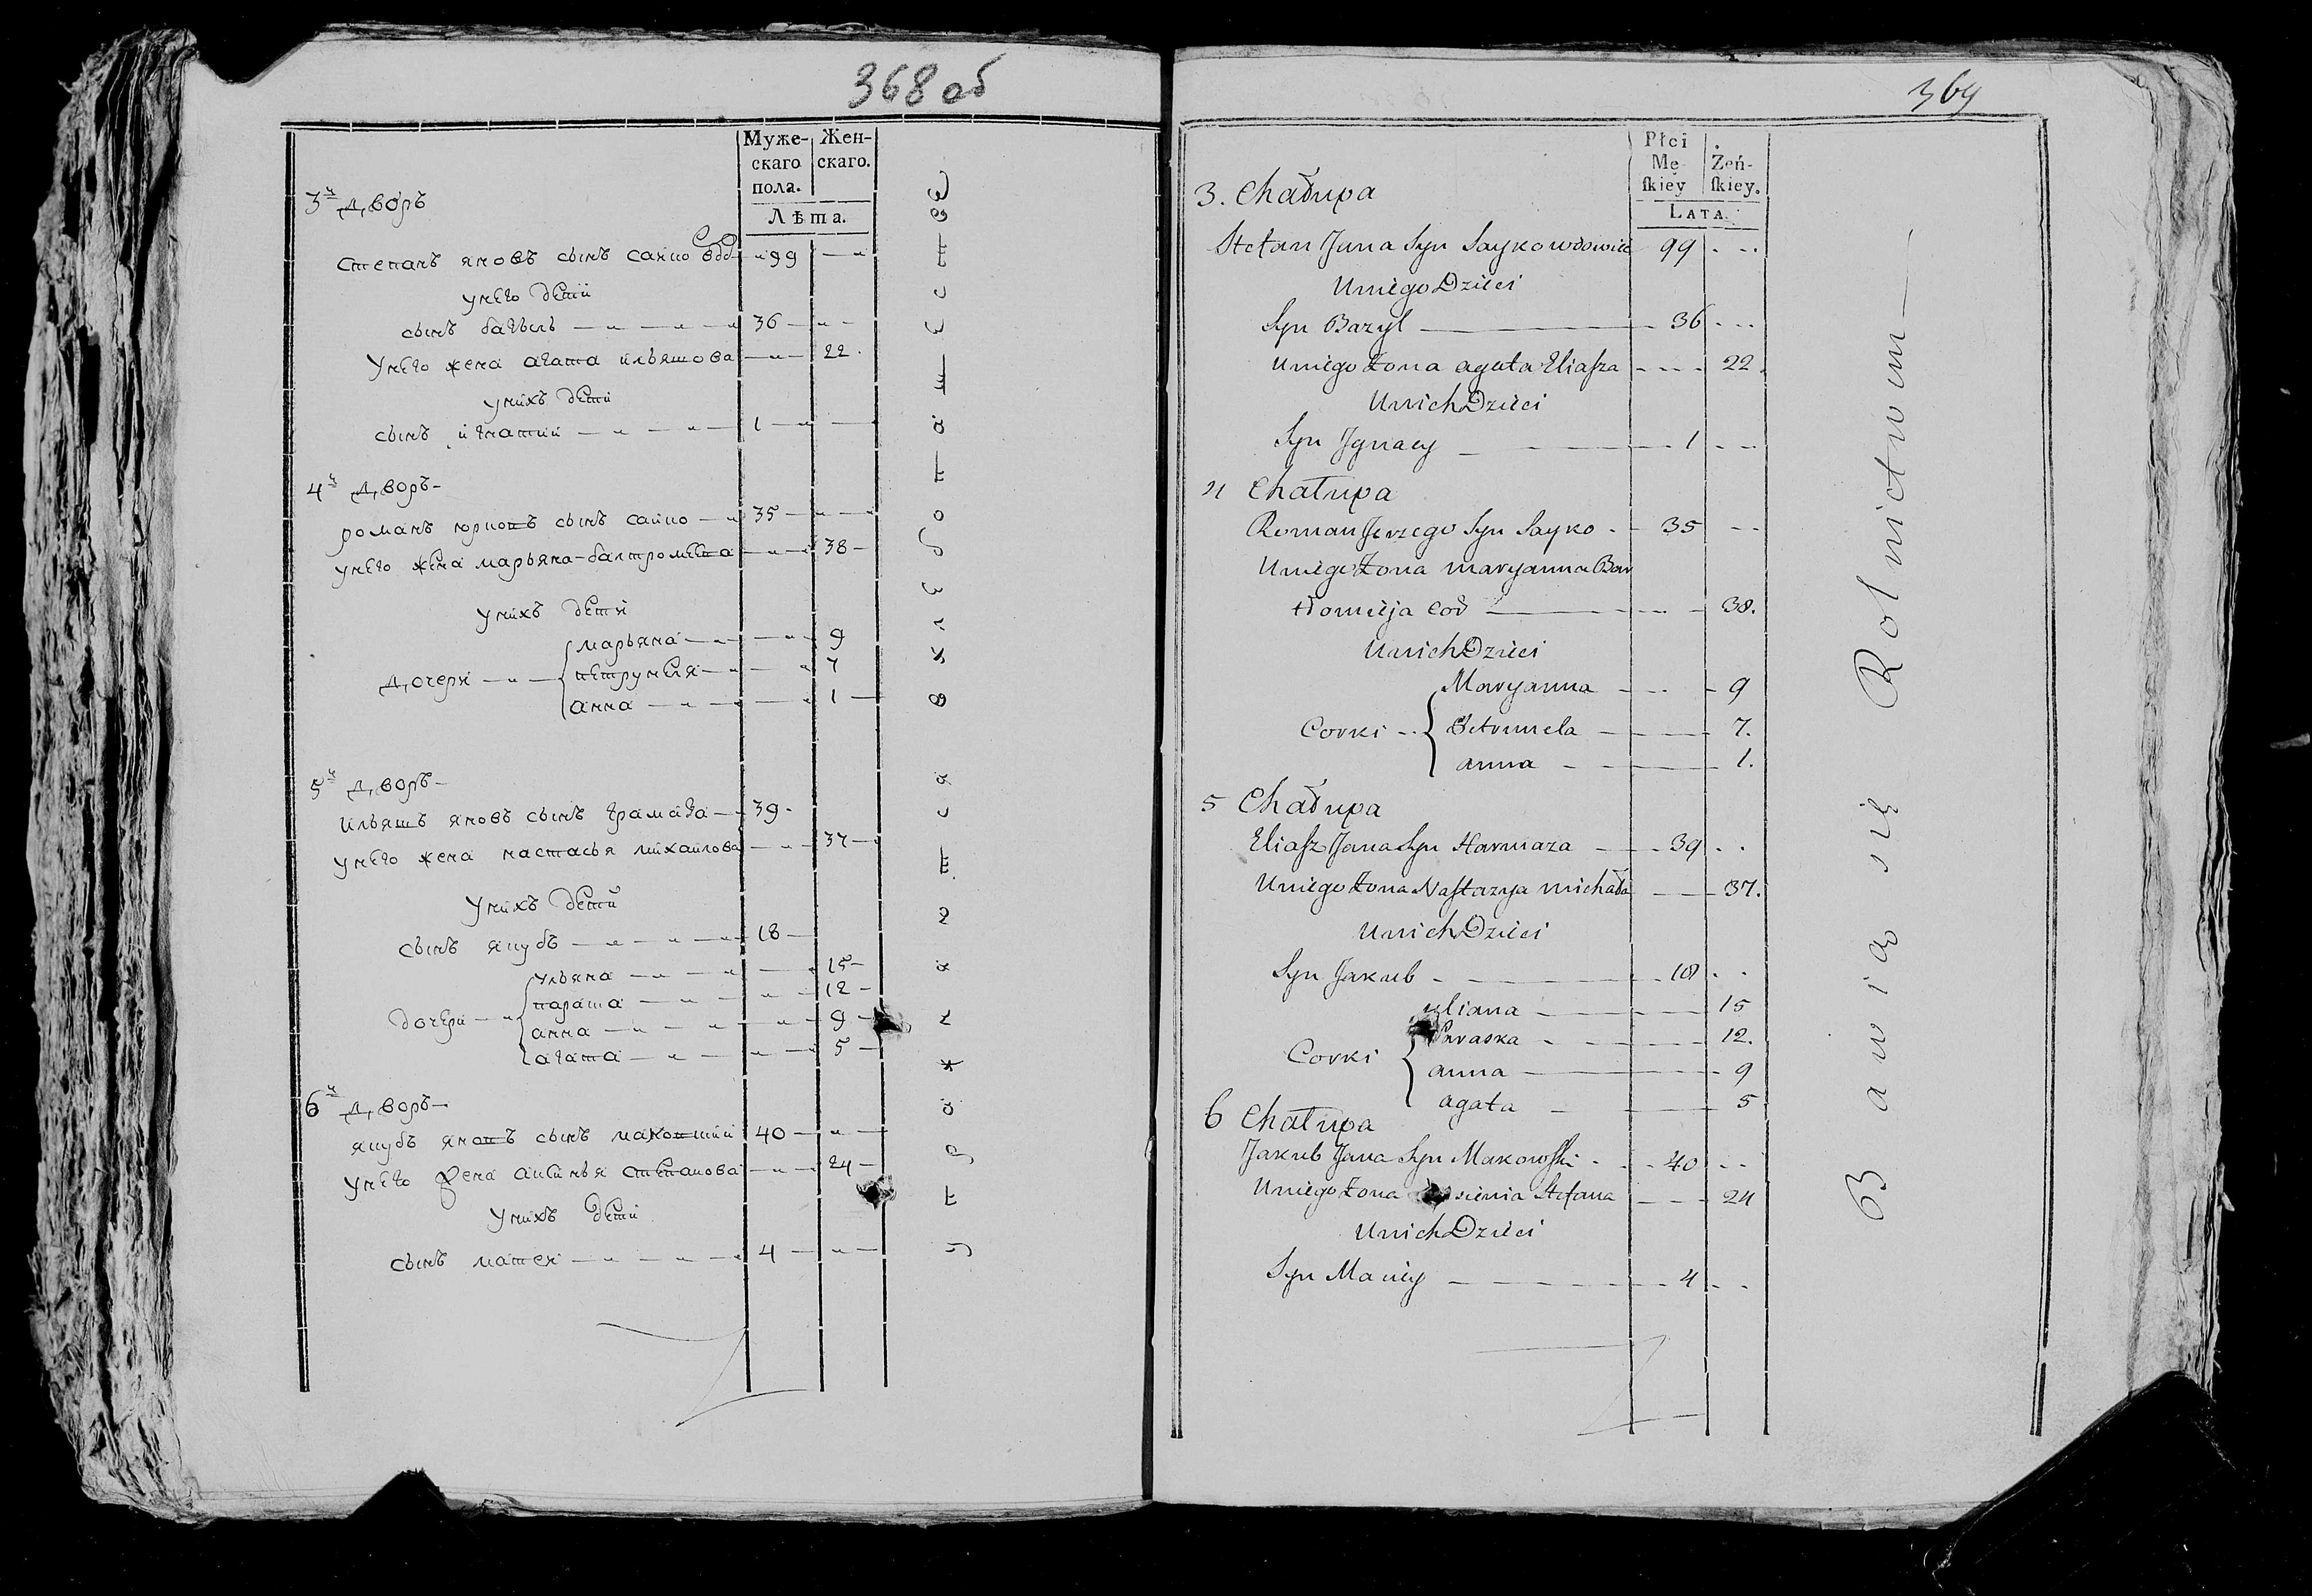 368 об
Муже-
скаго
пола.
Жен-
скаго.
Лѣта.
3й дворъ
степанъ яновъ сынъ сайко вдо 99
у него дети
сынъ базыль 36
у него жена агата ильяшова 22
у нихъ дети
сынъ игнатий 1
4й дворъ
романъ юрковъ сынъ сайко 35
у него жена марьяна балтромеева 38
у нихъ дети
марьяна 9
дочери петрунеля 7
анна 1
5й дворъ
ильяшъ яновъ сынъ 39
у него жена настасья михайлова 37
у нихъ дети
сынъ якубъ 18
ульяна 15
параска 12
дочери
анна 9
агата 5
6й дворъ
якубъ яновъ сынъ маковский 40
у него жена аксинья степанова 24
у нихъ дети
сынъ матей 4
369
Płci
Mę-
skiey
Żeń-
skiey.
LATA.
3. Chałupa
Stefan Jana Syn Sayko wdowiec 99
U niego Dzieci
Syn Bazyl 36
U niego Żona agata Eliasza 22
U nich Dzieci
Syn Jgnacy 1
4 Chałupa
Roman Jerzego Syn Sayko 35
U niego Żona maryanna Bar
tłomieja cod 38.
U nich Dzieci
Maryanna 9
Corki Petrunela 7.
anna 1.
5 Chałupa
Eliasz Jana Syn Harmaza 39
U niego Żona Nastazya michała 37.
U nich Dzieci
Syn Jakub 18
uliana 15
Paraska 12.
Corki
anna 9
agata 5
6 Chałupa
Jakub Jana Syn Makowski 40
U niego Żona Stefana 24
U nich Dzieci
Syn Maciey 4
Bawią się Rolnictwem